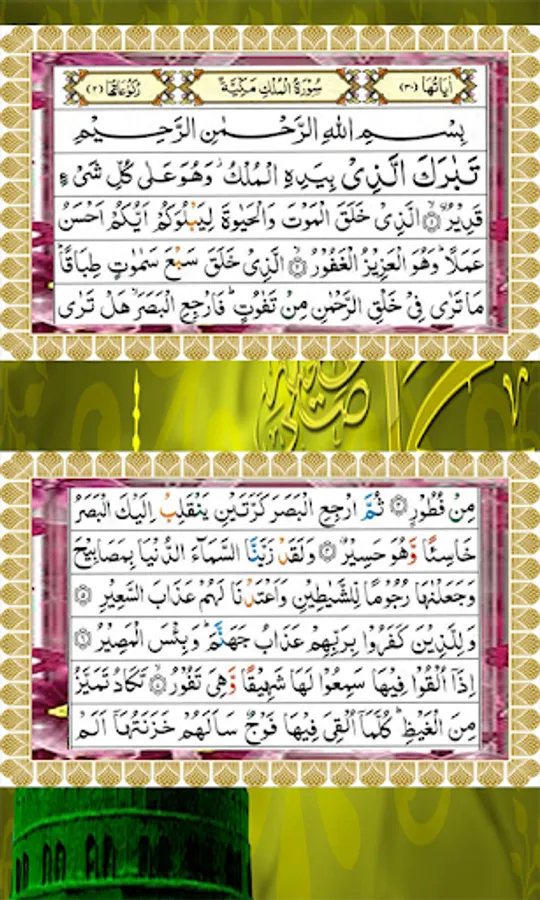 اٰيَاتُهَا (٣٠) سُوْرَةُ الْمُلْكِ مَكِّيَّةٌ رُكُوْعَاتُهَا (٢)
بِسْمِ اللهِ الرَّحْمٰنِ الرَّحِيْمِ
تَبٰرَكَ الَّذِىْ بِيَدِهِ الْمُلْكُ وَهُوَ عَلٰى كُلِّ شَىْءٍ
قَدِيْرُ ۙ﴿١﴾ الَّذِىْ خَلَقَ الْمَوْتَ وَالْحَيٰوةَ لِيَبْلُوَكُمْ اَيُّكُمْ اَحْسَنُ
عَمَلًا ؕ وَهُوَ الْعَزِيْزُ الْغَفُوْرُ ۙ﴿٢﴾ الَّذِىْ خَلَقَ سَبْعَ سَمٰوٰتٍ طِبَاقًا ؕ
مَا تَرٰى فِىْ خَلْقِ الرَّحْمٰنِ مِنْ تَفٰوُتٍ ؕ فَارْجِعِ الْبَصَرَ ۙ هَلْ تَرٰى
مِنْ فُطُوْرٍ ﴿٣﴾ ثُمَّ ارْجِعِ الْبَصَرَ كَرَّتَيْنِ يَنْقَلِبْ اِلَيْكَ الْبَصَرُ
خَاسِئًا وَّهُوَ حَسِيْرٌ ﴿٤﴾ وَلَقَدْ زَيَّنَّا السَّمَآءَ الدُّنْيَا بِمَصَابِيْحَ
وَجَعَلْنٰهَا رُجُوْمًا لِّلشَّيٰطِيْنِ وَاَعْتَدْنَا لَهُمْ عَذَابَ السَّعِيْرِ ﴿٥﴾
وَلِلَّذِيْنَ كَفَرُوْا بِرَبِّهِمْ عَذَابُ جَهَنَّمَ ؕ وَبِئْسَ الْمَصِيْرُ ﴿٦﴾
اِذَاۤ اُلْقُوْا فِيْهَا سَمِعُوْا لَهَا شَهِيْقًا وَّهِىَ تَفُوْرُ ۙ﴿٧﴾ تَكَادُ تَمَيَّزُ
مِنَ الْغَيْظِ ؕ كُلَّمَاۤ اُلْقِىَ فِيْهَا فَوْجٌ سَاَلَهُمْ خَزَنَتُهَاۤ اَلَمْ